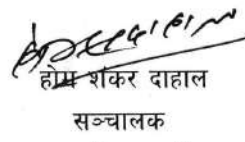 होम शंकर दाहाल
सञ्चालक